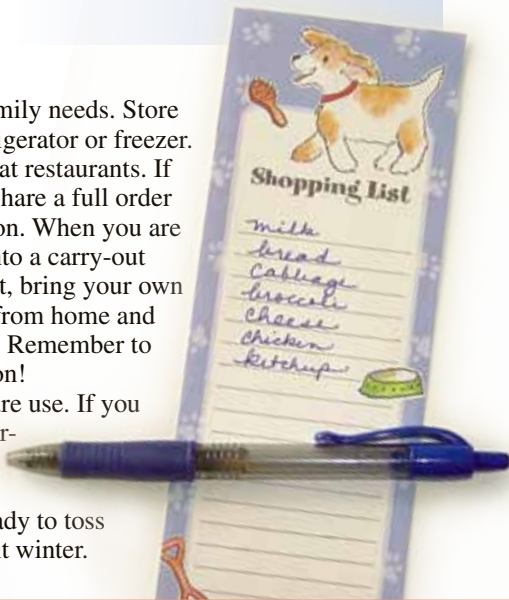 mily needs. Store
igerator or freezer.
at restaurants. If
hare a full order
on. When you are
nto a carry-out
t, bring your own
from home and
Remember to
on!
re use. If you
r-
ady to toss
t winter.
Shopping List
milk
bread
Cabbage
broccoli
cheese
chicken
ketchup